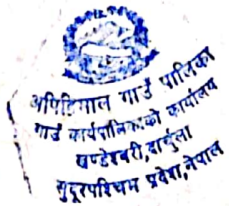 अपिहिमाल गाउँ पालिका
गाउँ कार्यपालिकाको कार्यालय
खण्डेश्वरी, दार्चुला
सुदूरपश्चिम प्रदेश, नेपाल